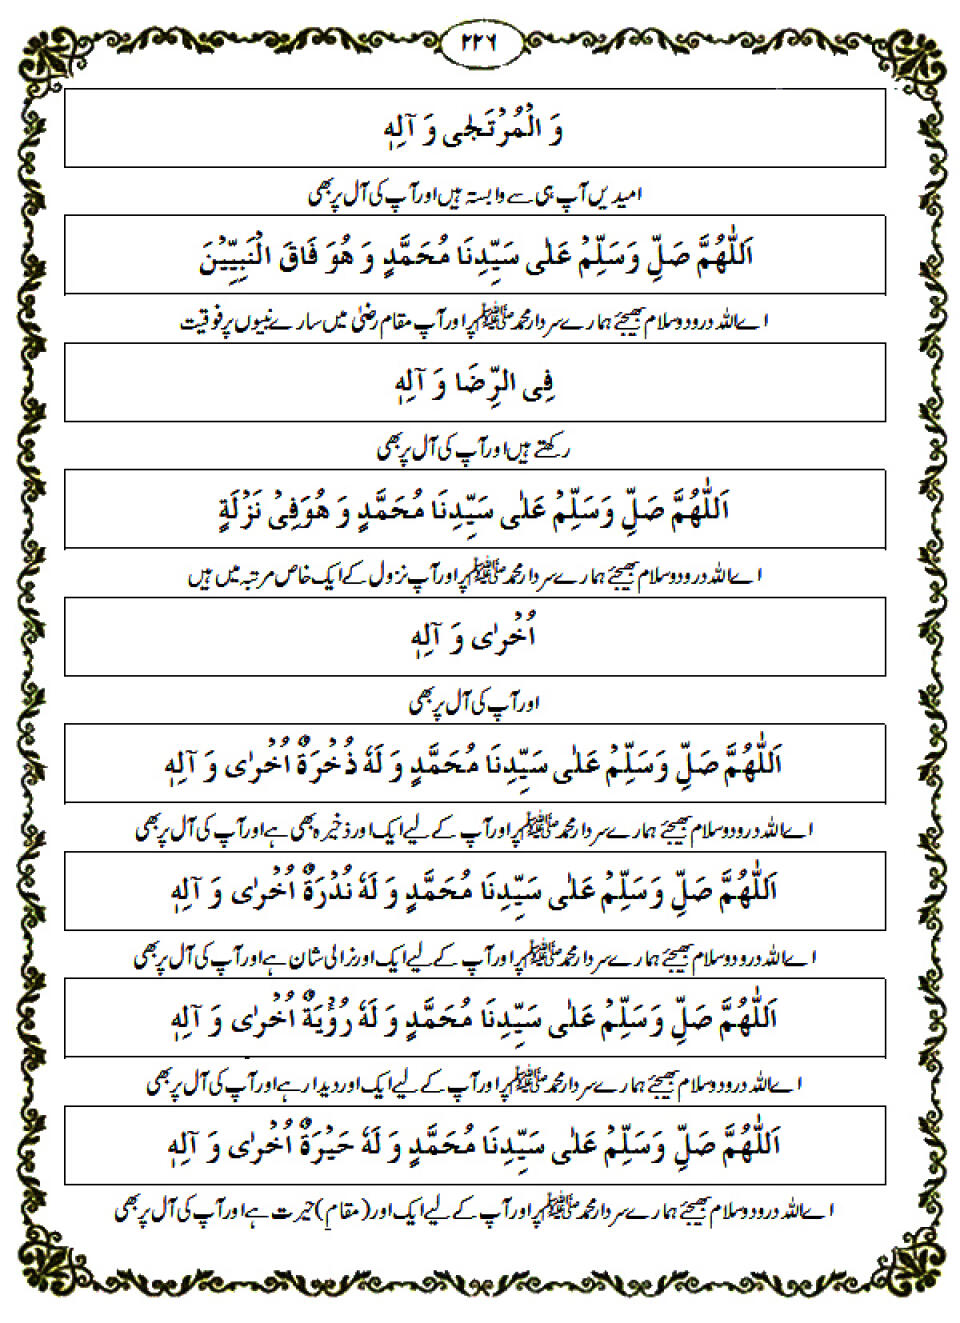 ۲۲۶
وَ الْمُرْتَجٰی وَ آلِہٖ
امیدیں آپ ہی سے وابستہ ہیں اور آپ کی آل پر بھی
اَللّٰھُمَّ صَلِّ وَسَلِّمْ عَلٰی سَیِّدِنَا مُحَمَّدٍ وَ ھُوَ فَاقَ الْنَبِیِّیْنَ
اے اللہ درود و سلام بھیجئے ہمارے سردار محمد ﷺ پر اور آپ مقام رضیٰ میں سارے نبیوں پر فوقیت
فِی الرِّضَا وَ آلِہٖ
رکھتے ہیں اور آپ کی آل پر بھی
اَللّٰھُمَّ صَلِّ وَسَلِّمْ عَلٰی سَیِّدِنَا مُحَمَّدٍ وَ ھُوَفِیْ نَزْلَةٍ
اے اللہ درود و سلام بھیجئے ہمارے سردار محمد ﷺ پر اور آپ نزول کے ایک خاص مرتبہ میں ہیں
اُخْرٰی وَ آلِہٖ
اور آپ کی آل پر بھی
اَللّٰھُمَّ صَلِّ وَسَلِّمْ عَلٰی سَیِّدِنَا مُحَمَّدٍ وَ لَهٗ ذُخْرَةٌ اُخْرٰی وَ آلِہٖ
اے اللہ درود و سلام بھیجئے ہمارے سردار محمد ﷺ پر اور آپ کے لیے ایک اور ذخیرہ بھی ہے اور آپ کی آل پر بھی
اَللّٰھُمَّ صَلِّ وَسَلِّمْ عَلٰی سَیِّدِنَا مُحَمَّدٍ وَ لَهٗ نُدْرَةٌ اُخْرٰی وَ آلِہٖ
اے اللہ درود و سلام بھیجئے ہمارے سردار محمد ﷺ پر اور آپ کے لیے ایک اور نرالی شان ہے اور آپ کی آل پر بھی
اَللّٰھُمَّ صَلِّ وَسَلِّمْ عَلٰی سَیِّدِنَا مُحَمَّدٍ وَ لَهٗ رُؤْیَةٌ اُخْرٰی وَ آلِہٖ
اے اللہ درود و سلام بھیجئے ہمارے سردار محمد ﷺ پر اور آپ کے لیے ایک اور دیدار ہے اور آپ کی آل پر بھی
اَللّٰھُمَّ صَلِّ وَسَلِّمْ عَلٰی سَیِّدِنَا مُحَمَّدٍ وَ لَهٗ حَیْرَةٌ اُخْرٰی وَ آلِہٖ
اے اللہ درود و سلام بھیجئے ہمارے سردار محمد ﷺ پر اور آپ کے لیے ایک اور (مقام) حیرت ہے اور آپ کی آل پر بھی